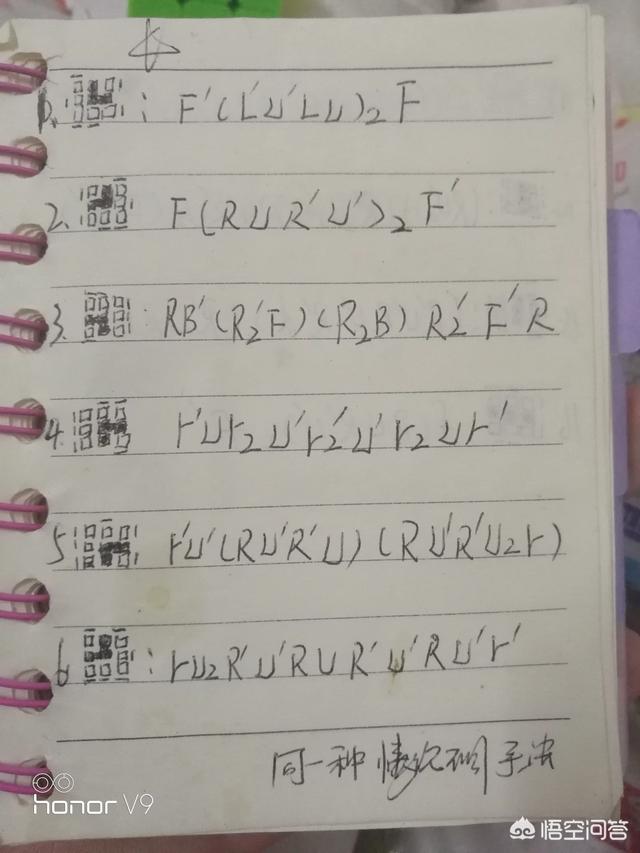 1. : F'(L'U'LU)₂F
2. F(RUR'U')₂F'
3. RB'(R₂'F)(R₂B)R₂'F'R
4. r'Ur₂U'r₂'U'r₂Ur'
5 r'U'(RU'R'U)(RU'R'U₂r)
6 : rU₂R'U'RUR'U'RU'r'
同一种情况 手法
honor V9
悟空问答